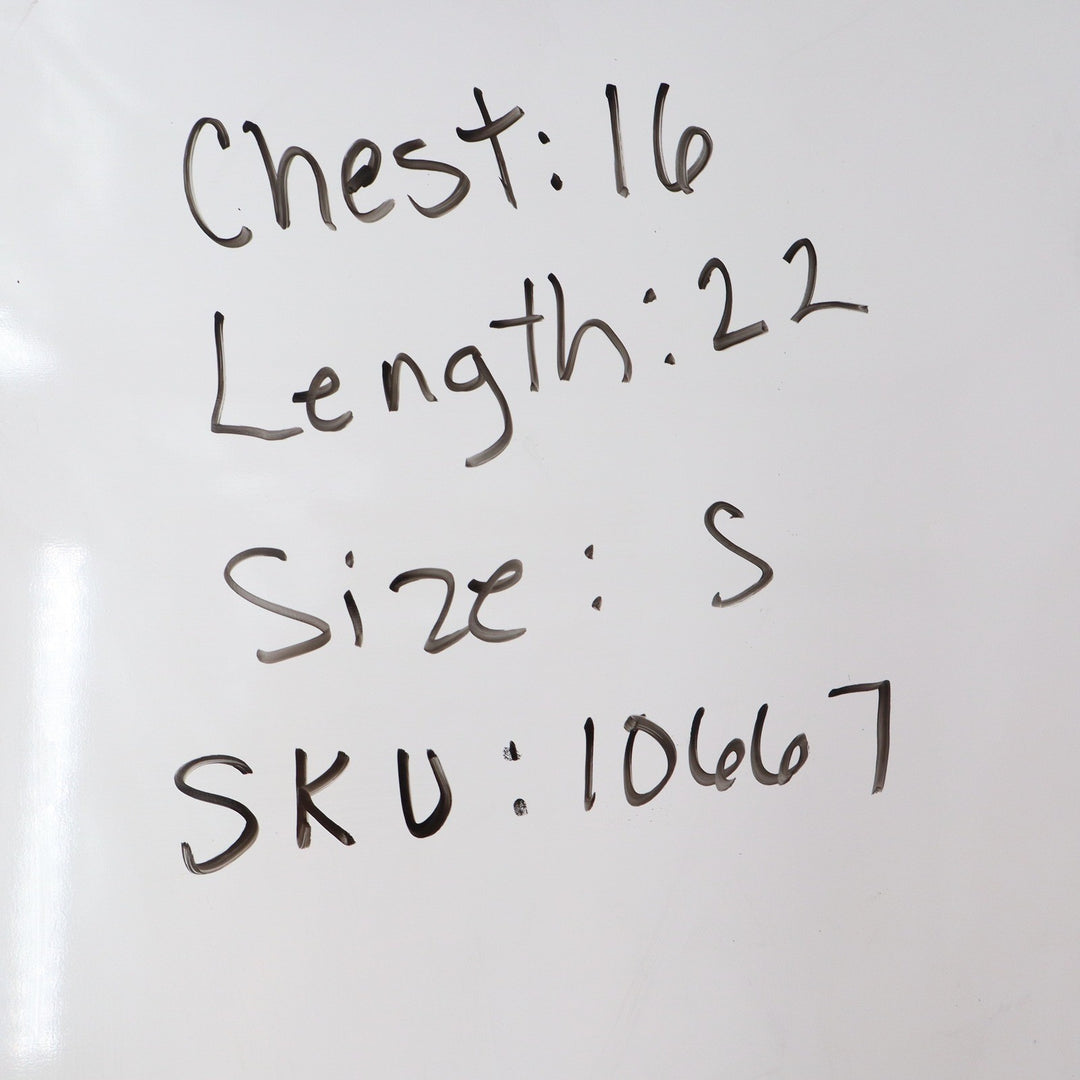 Chest: 16
Length: 22
Size: S
SKU: 10667